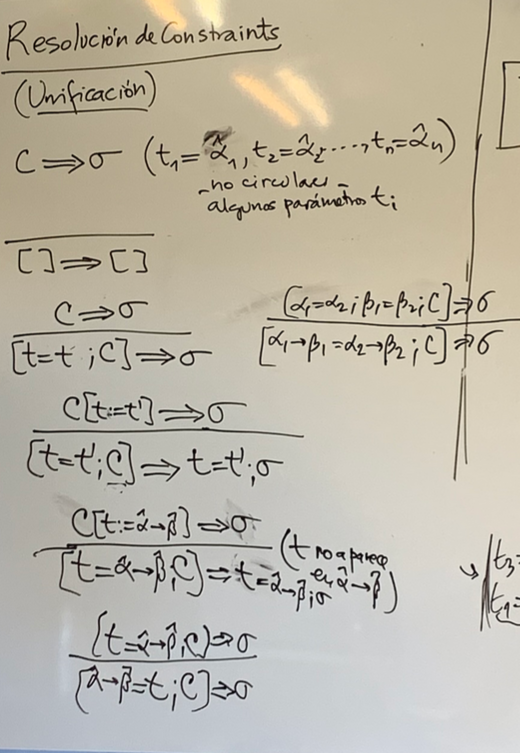 Resolución de Constraints
(Unificación)
C ⟹ σ (t₁ = α̂₁, t₂ = α̂₂, ..., tₙ = α̂ₙ)
- no circular -
algunos parámetros tᵢ
[ ] ⟹ [ ]
C ⟹ σ
[t = t ; C] ⟹ σ
[α₁ = α₂ ; β₁ = β₂ ; C] ⟹ σ
[α₁ → β₁ = α₂ → β₂ ; C] ⟹ σ
C[t := t'] ⟹ σ
[t = t' ; C] ⟹ t = t' ; σ
C[t := α̂ → β̂] ⟹ σ
[t = α̂ → β̂ ; C] ⟹ t = α̂ → β̂ ; σ
(t no aparece
en α̂ → β̂)
[t = α̂ → β̂ ; C] ⟹ σ
[α̂ → β̂ = t ; C] ⟹ σ
→ t₃ =
t₁ =